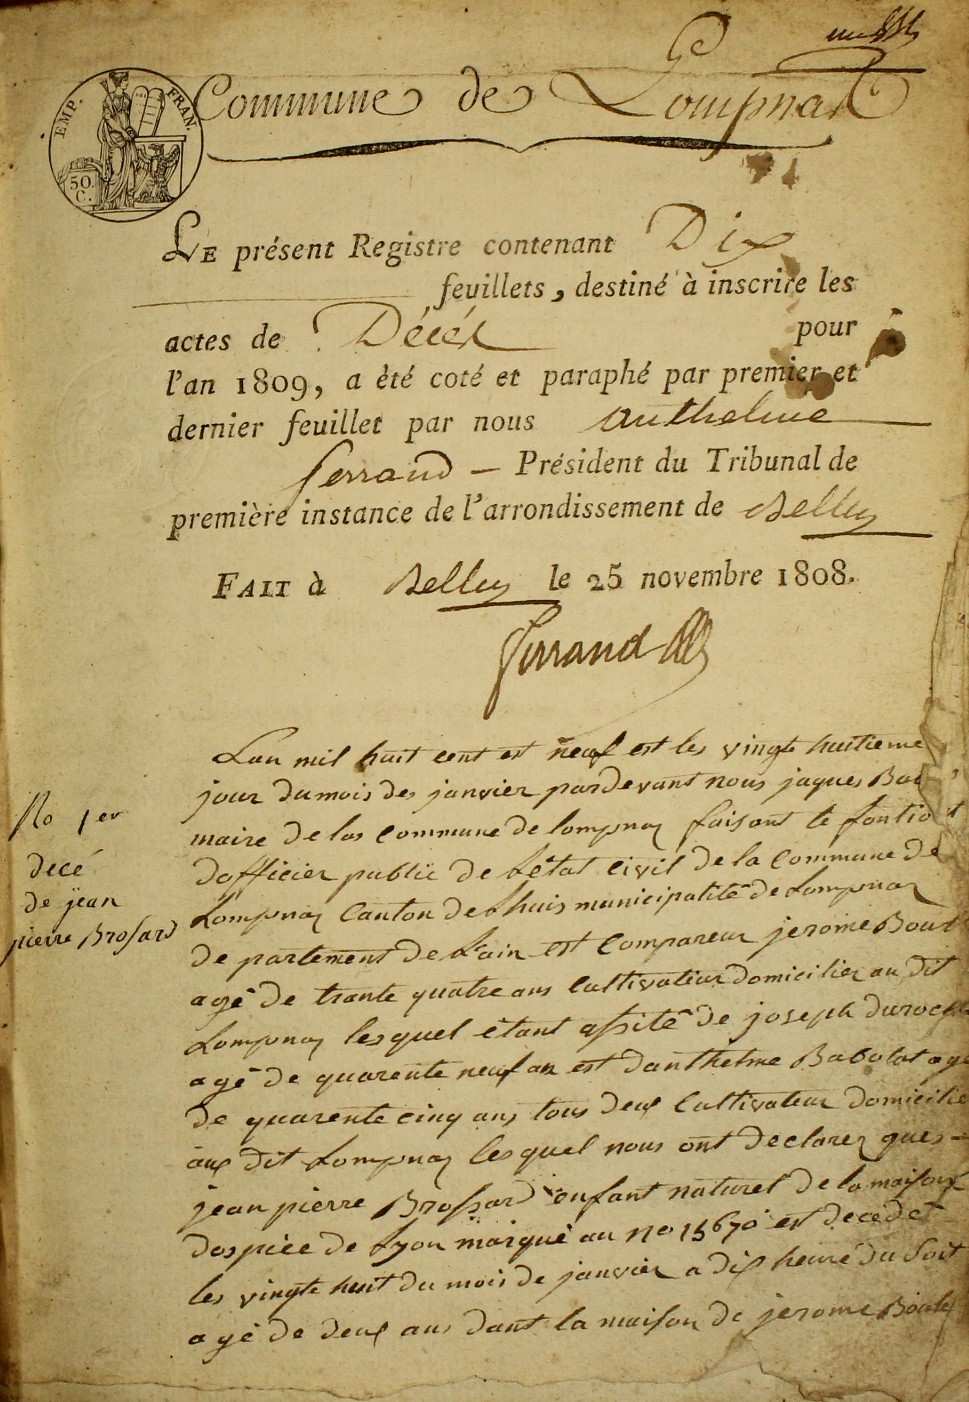 EMP. FRAN.
50 C.
Commune de Lompnas
Le présent Registre contenant Dix
feuillets, destiné à inscrire les
actes de Décés pour
l'an 1809, a été coté et paraphé par premier et
dernier feuillet par nous Anthelme
ferrand — Président du Tribunal de
première instance de l'arrondissement de Belley
FAIT à Belley le 25 novembre 1808.
ferrand
No 1er
decé
de jean
pierre Brossard
Lan mil huit cent est neuf est les vingte huitieme
jour du mois des janvier pardevant nous jaques
maire de las commune de lompnaz faisant le
dofficier public de Létat civil de la Commune de
Lompnaz Canton de Lhuis municipalité de Lompnaz
de partement de Lain est compareur jerome
agé de trante quatre ans Cultivateur domicilier au dit
Lompnaz lesquel étant assité de joseph
agé de quarente neuf an est danthelme Babolat agé
de quarente cinq ans tous deux Cultivateur domicilié
aux dit Lompnaz lesquel nous ont declarez ques
jean pierre Brossard enfant naturel de la maison
dospice de Lyon marqué au no 15670 est decedet
les vingte huit du mois de janvier a dix heure du Soit
agé de deux ans dant la maison de jerome